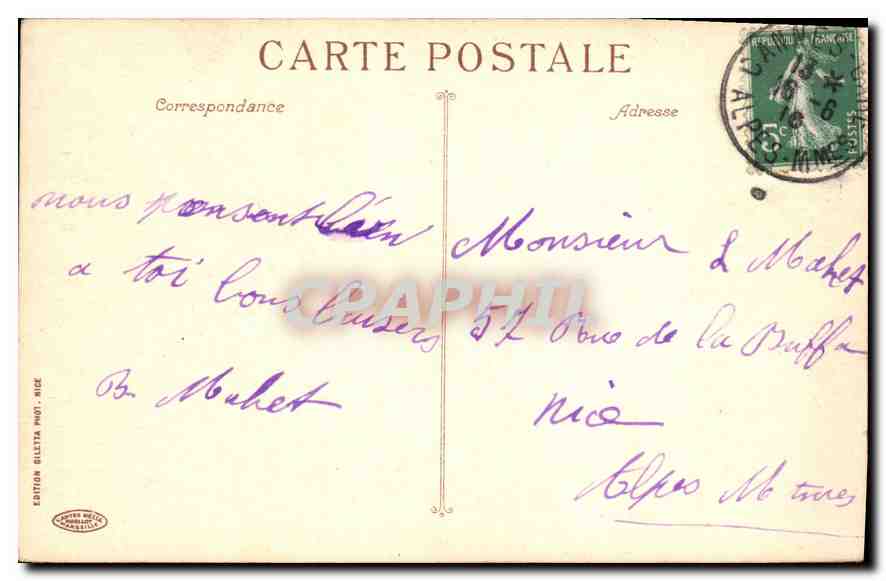 CARTE POSTALE
Correspondance
Adresse
REPUBLIQUE FRANÇAISE
5c
POSTES
CANNES
16 - 6
ALPES-MMES
nous pensont bien
a toi bons baisers
B. Mahet
Monsieur L Mahet
57 Rue de la Buffa
Nice
Alpes Mtimes
CPAPHIL
EDITION GILETTA PHOT. NICE
CARTES NEILA
MARSEILLE